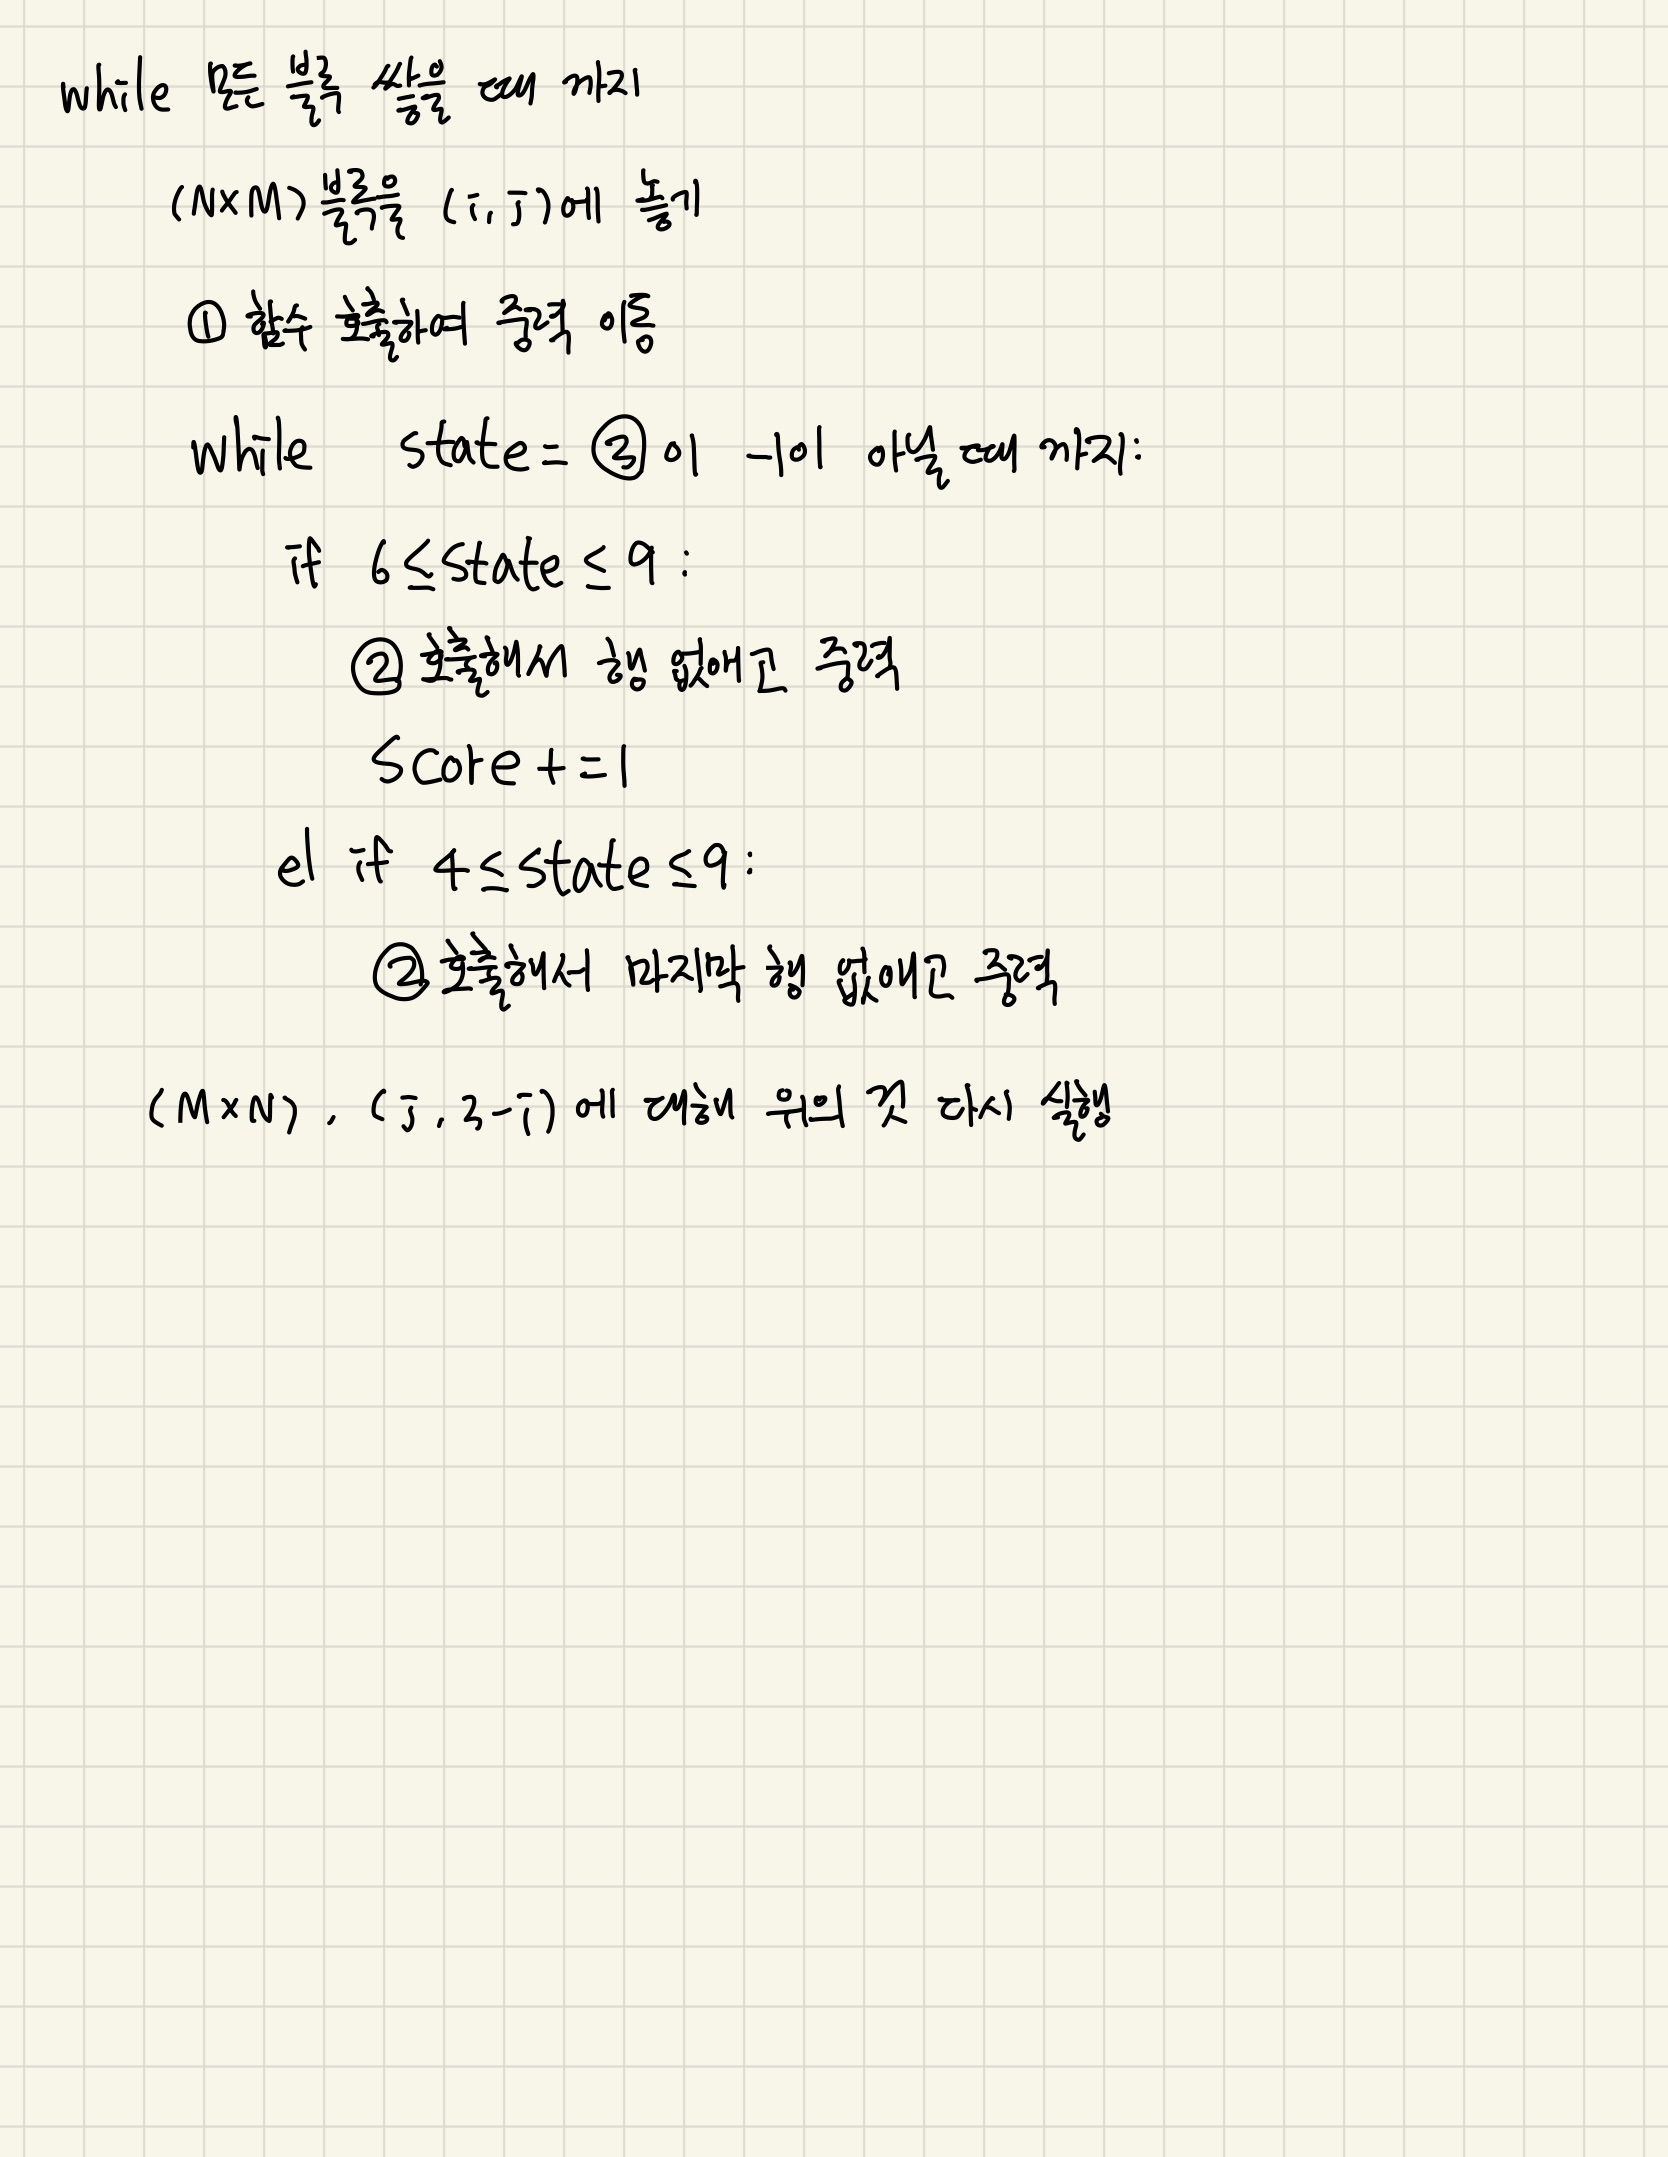 while 모든 블록 쌓을 때 까지
(N×M) 블록을 (i, j)에 놓기
① 함수 호출하여 중력 이동
while state = ③이 -1이 아닐 때 까지:
if 6≤state≤9:
② 호출해서 행 없애고 중력
Score+=1
el if 4≤state≤9:
② 호출해서 마지막 행 없애고 중력
(M×N), (j, 3-i)에 대해 위의 것 다시 실행